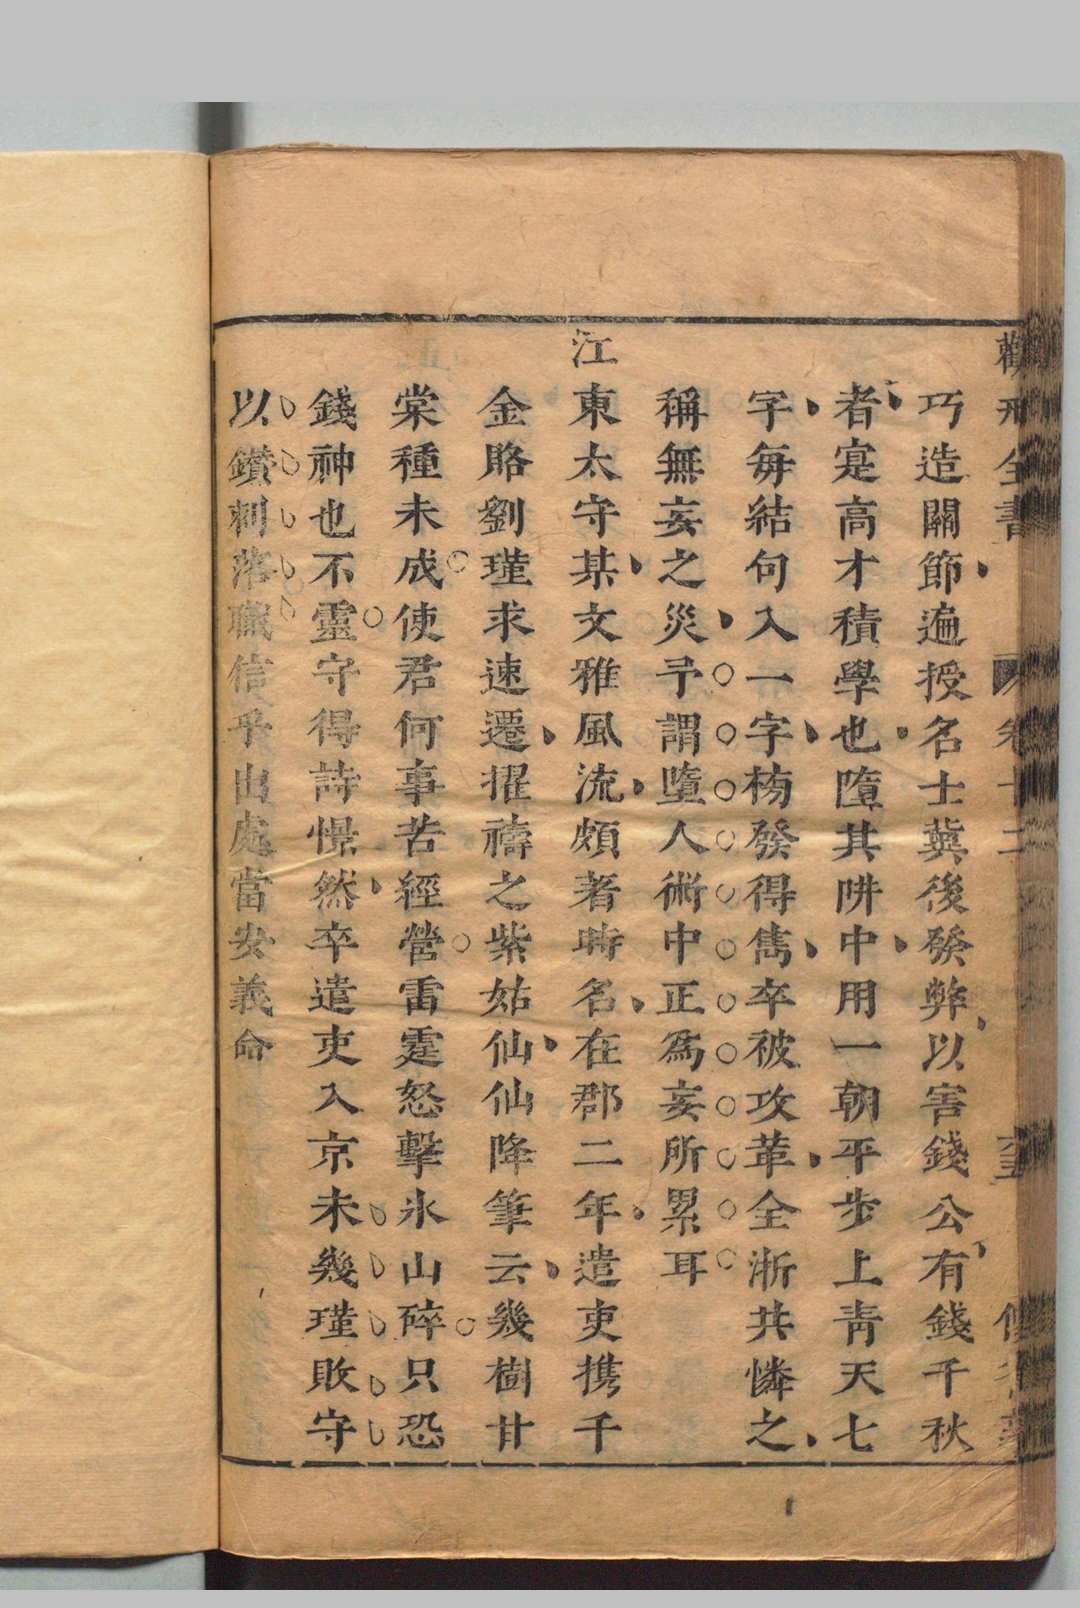 勸戒全書
卷十二
巧造關節遍授名士冀後發弊以害錢公有錢千秋
者寔高才積學也墮其阱中用一朝平步上青天七
字每結句入一字榜發得雋卒被攻革全浙共憐之
稱無妄之災予謂墮人術中正為妄所累耳
江東太守某文雅風流頗著時名在郡二年遣吏携千
金賂劉瑾求速遷擢禱之紫姑仙仙降筆云幾樹甘
棠種未成使君何事苦經營雷霆怒擊氷山碎只恐
錢神也不靈守得詩憬然卒遣吏入京未幾瑾敗守
以鑽刺落職信乎出處當安義命